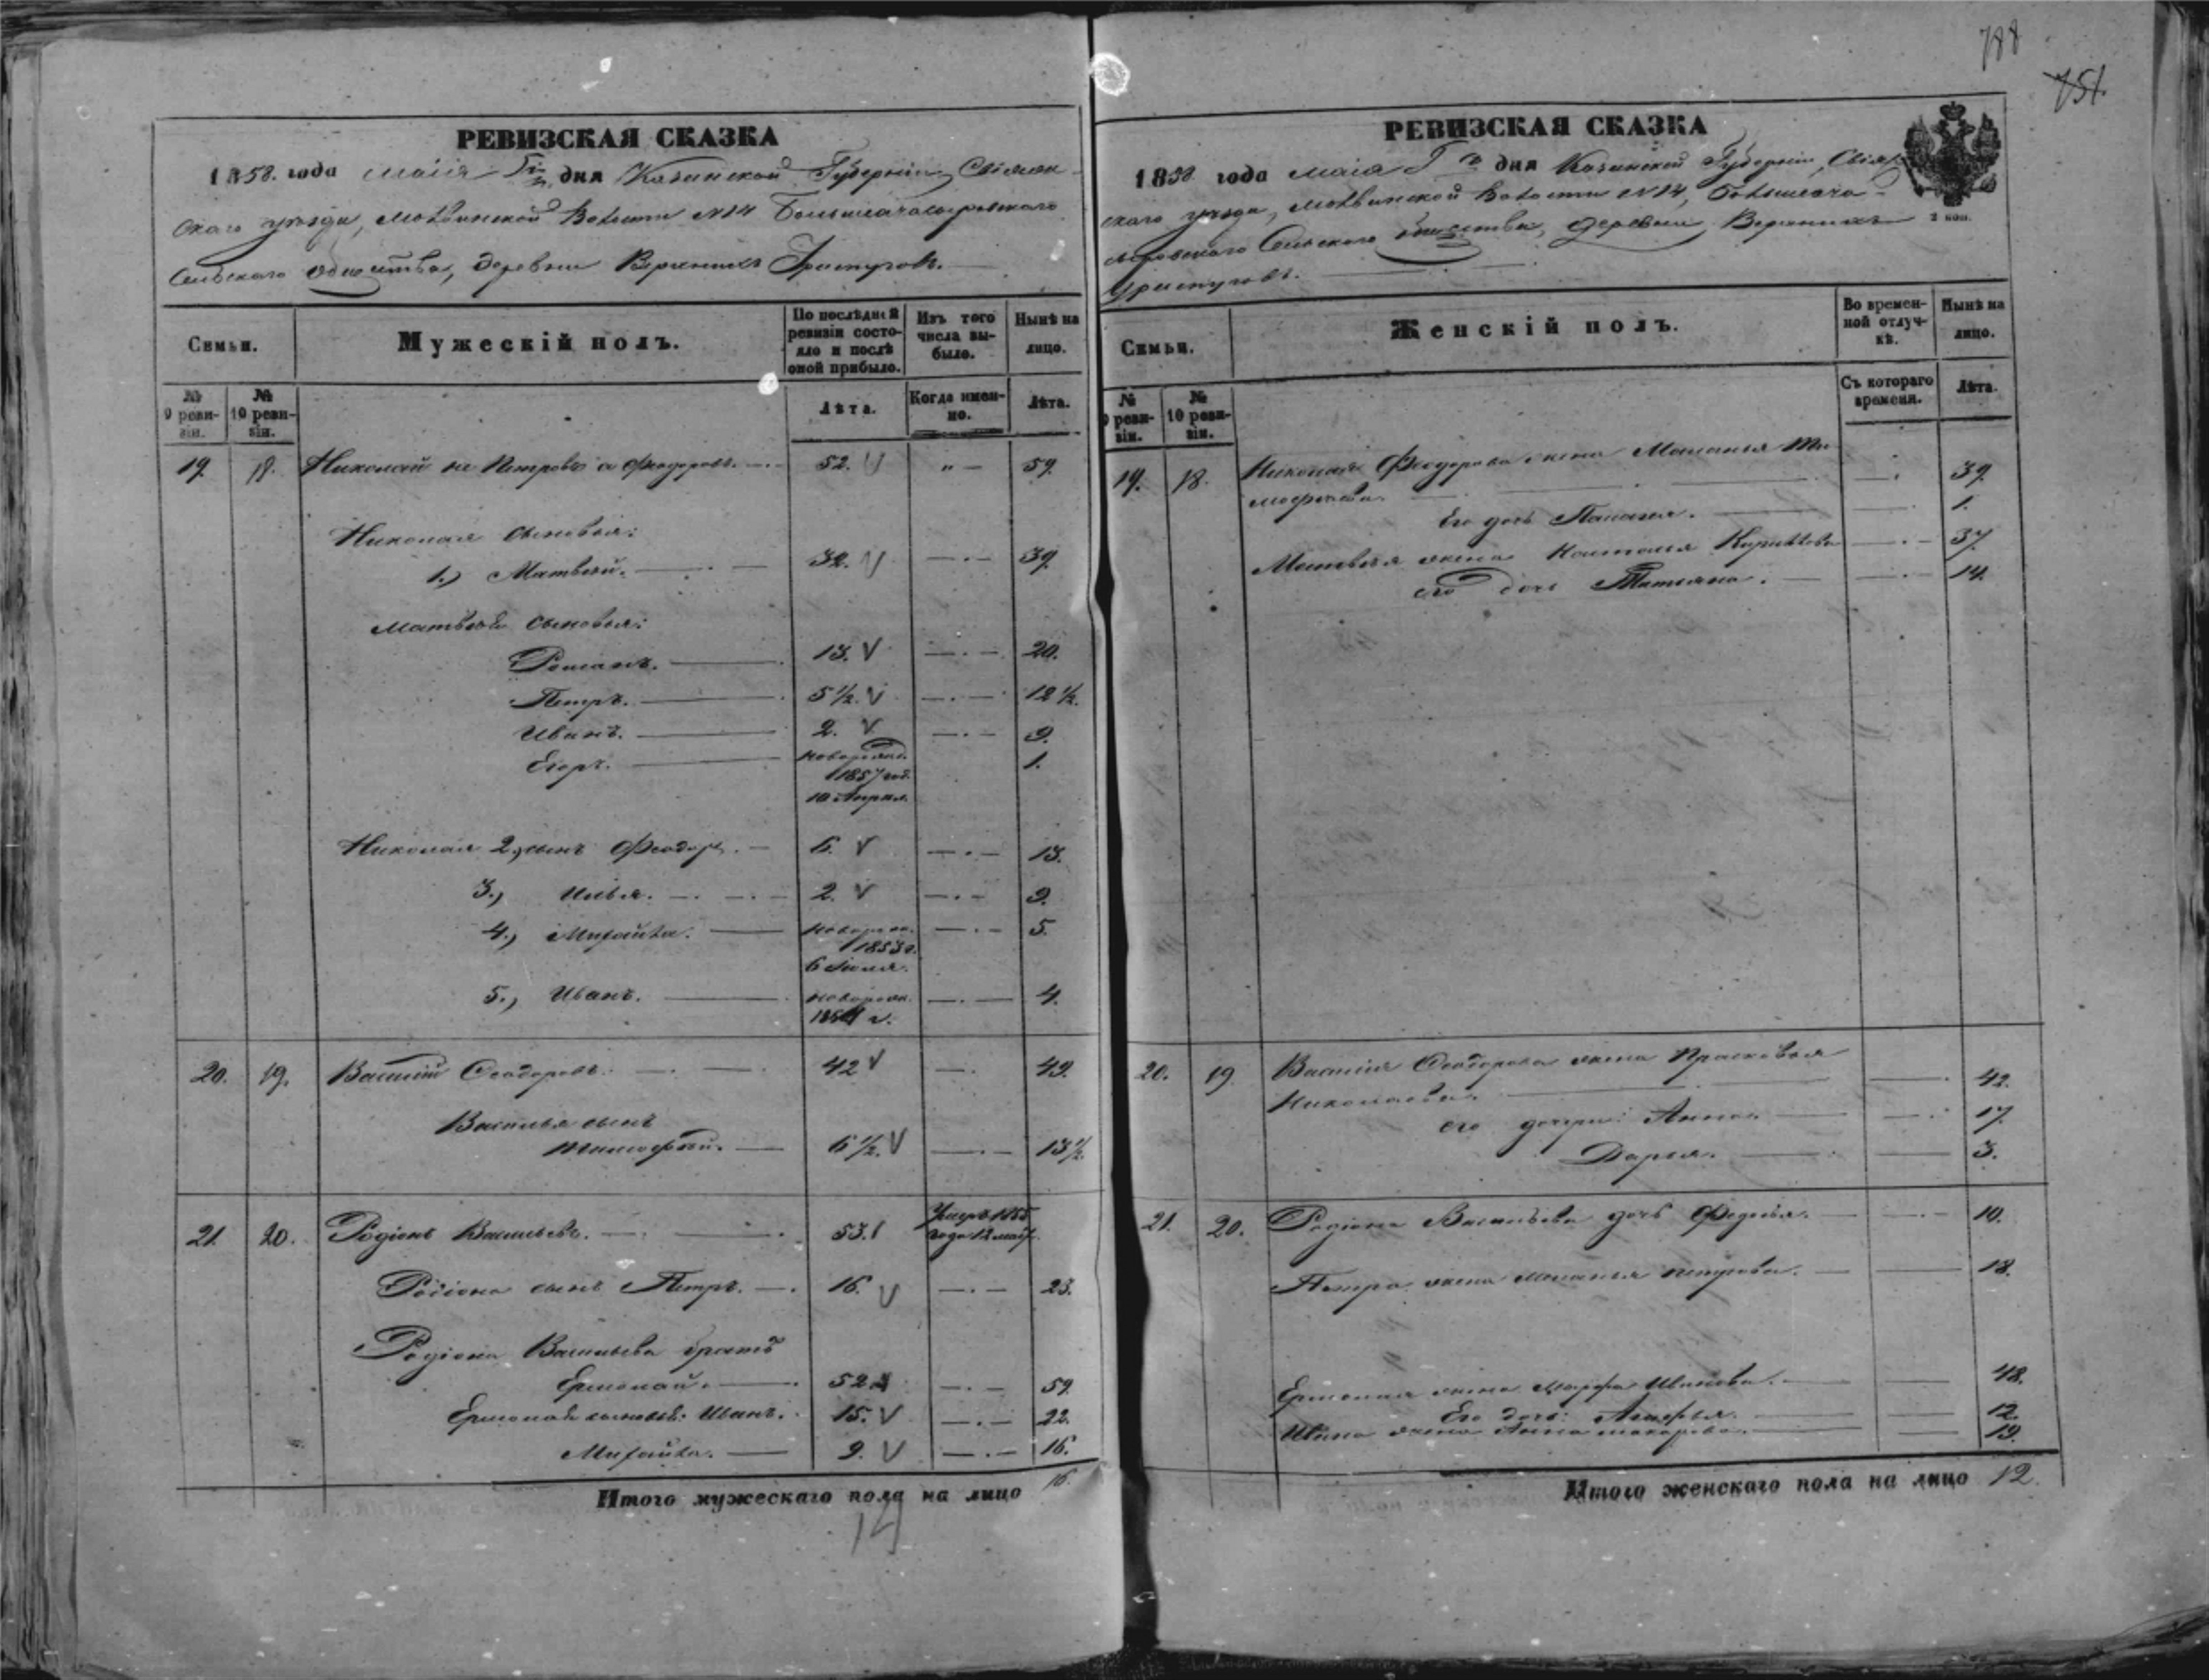 788
751.
РЕВИЗСКАЯ СКАЗКА
1858. года маія дня Казанской Губерніи, Свіяж-
скаго уѣзда, Молвинской Волости №14
Сельскаго общества, деревни Верхнихъ
Семьи.
Мужескій полъ.
По послѣдней ревизіи состояло и послѣ оной прибыло.
Изъ того числа выбыло.
Нынѣ на лицо.
№ 9 ревизіи.
№ 10 ревизіи.
Лѣта.
Когда именно.
Лѣта.
19. 18. Николай не Петровъ а Феодоровъ. 52. " 59.
Николая сыновья:
1.) Матвей. 32. 39.
Матвѣя сыновья:
Романъ. 13. 20.
Петръ. 5 1/2. 12 1/2.
Иванъ. 2. 9.
Егоръ. новорожд. 1.
1857 год.
10 Апрѣл.
Николая 2, сынъ Феодоръ. 6. 13.
3., Илья. 2. 9.
4., Михайла. новорож. 5.
1853 г.
6 Іюля.
5., Иванъ. новорож. 4.
1854 г.
20. 19. Василій Феодоровъ. 42 49.
Василья сынъ
Тимофей. 6 1/2. 13 1/2.
21. 20. Родіонъ Васильевъ. 53. Умеръ 1855
года 12 маія.
Родіона сынъ Петръ. 16. 23.
Родіона Васильева братъ
Ермолай. 52 59.
Ермолая сыновья: Иванъ. 15. 22.
Михайла. 9. 16.
Итого мужескаго пола на лицо 16.
14
РЕВИЗСКАЯ СКАЗКА
1858 года маія дня Казанской Губерніи, Свіяж-
скаго уѣзда, Молвинской Волости №14,
Сельскаго общества, деревни Верхнихъ
2 коп.
Семьи.
Женскій полъ.
Во временной отлучкѣ.
Нынѣ на лицо.
№ 9 ревизіи.
№ 10 ревизіи.
Съ котораго времени.
Лѣта.
19. 18. Николая Феодорова жена Маланья Ти-
мофеева. 39.
Его дочь Палагея. 1.
Матвея жена Наталья Кирилова 37.
его дочь Татьяна. 14.
20. 19 Василья Феодорова жена Прасковья
Николаева. 42.
его дочери: Анна. 17.
Дарья. 3.
21. 20. Родіона Васильева дочь Федосья. 10.
Петра жена Меланья Петрова. 18.
Ермолая жена Марфа Иванова. 48.
Его дочь: Агафья. 12.
Ивана жена Анна Макарова. 19.
Итого женскаго пола на лицо 12.